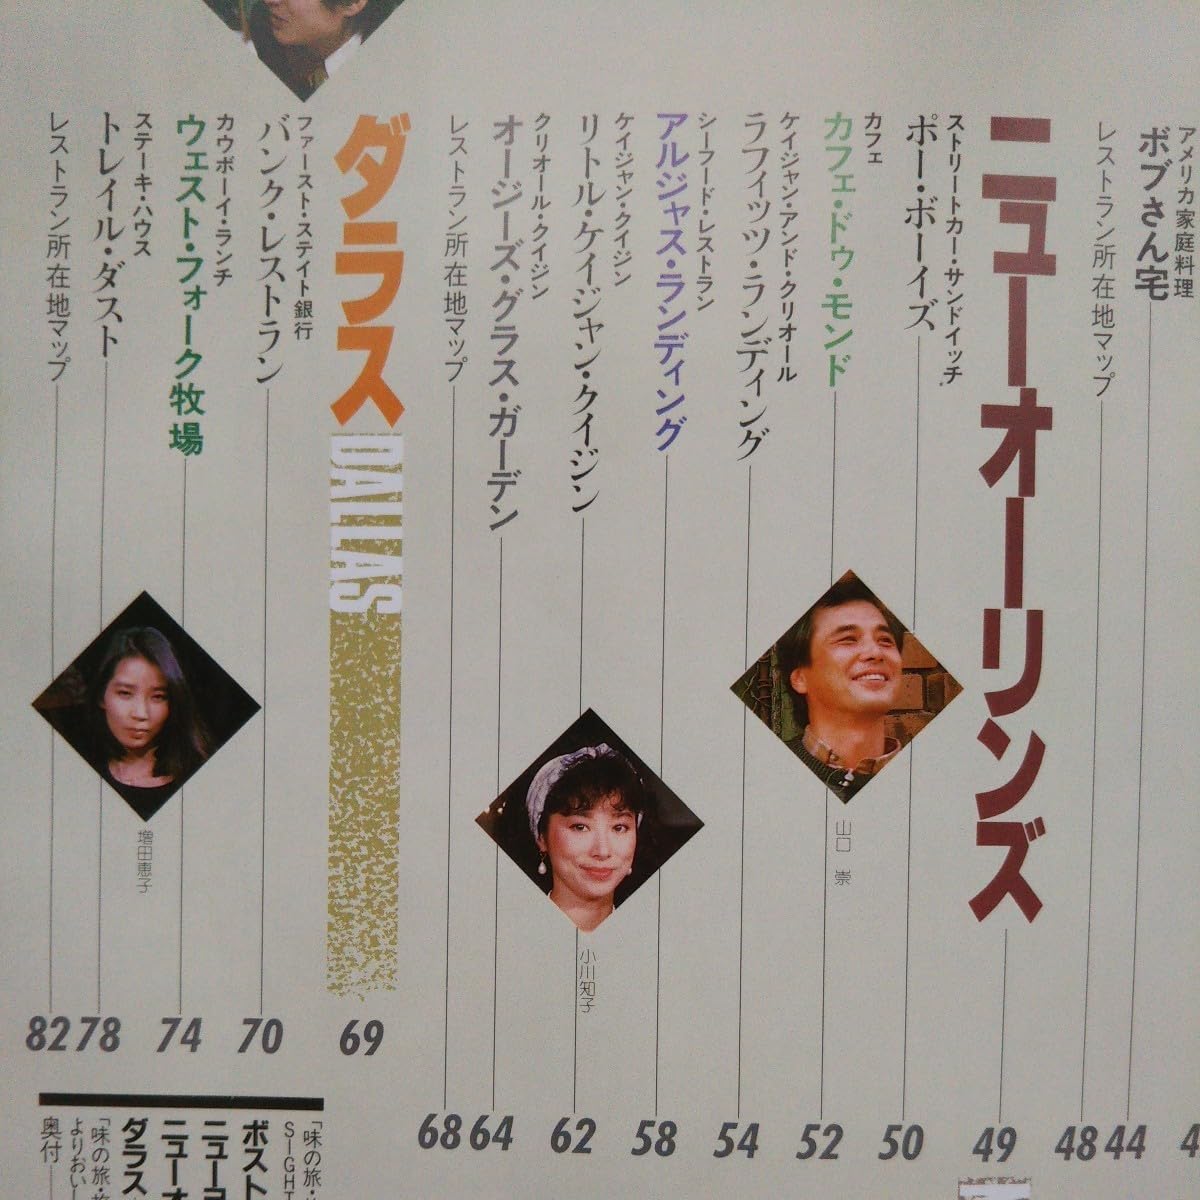 アメリカ家庭料理
ボブさん宅
44
レストラン所在地マップ
48
ニューオーリンズ
49
ストリートカー・サンドイッチ
ポー・ボーイズ
50
カフェ
カフェ・ドゥ・モンド
52
ケイジャン・アンド・クリオール
ラフィッツ・ランディング
54
シーフード・レストラン
アルジャス・ランディング
58
ケイジャン・クイジン
リトル・ケイジャン・クイジン
62
クリオール・クイジン
オージーズ・グラス・ガーデン
64
レストラン所在地マップ
68
山口 崇
小川知子
ダラス
DALLAS
69
ファースト・ステイト銀行
バンク・レストラン
70
カウボーイ・ランチ
ウェスト・フォーク牧場
74
ステーキ・ハウス
トレイル・ダスト
78
レストラン所在地マップ
82
増田恵子
「味の旅・
SIGHT
ボスト
ニューヨ
ニューオ
ダラス
「味の旅・
よりおいし
奥付